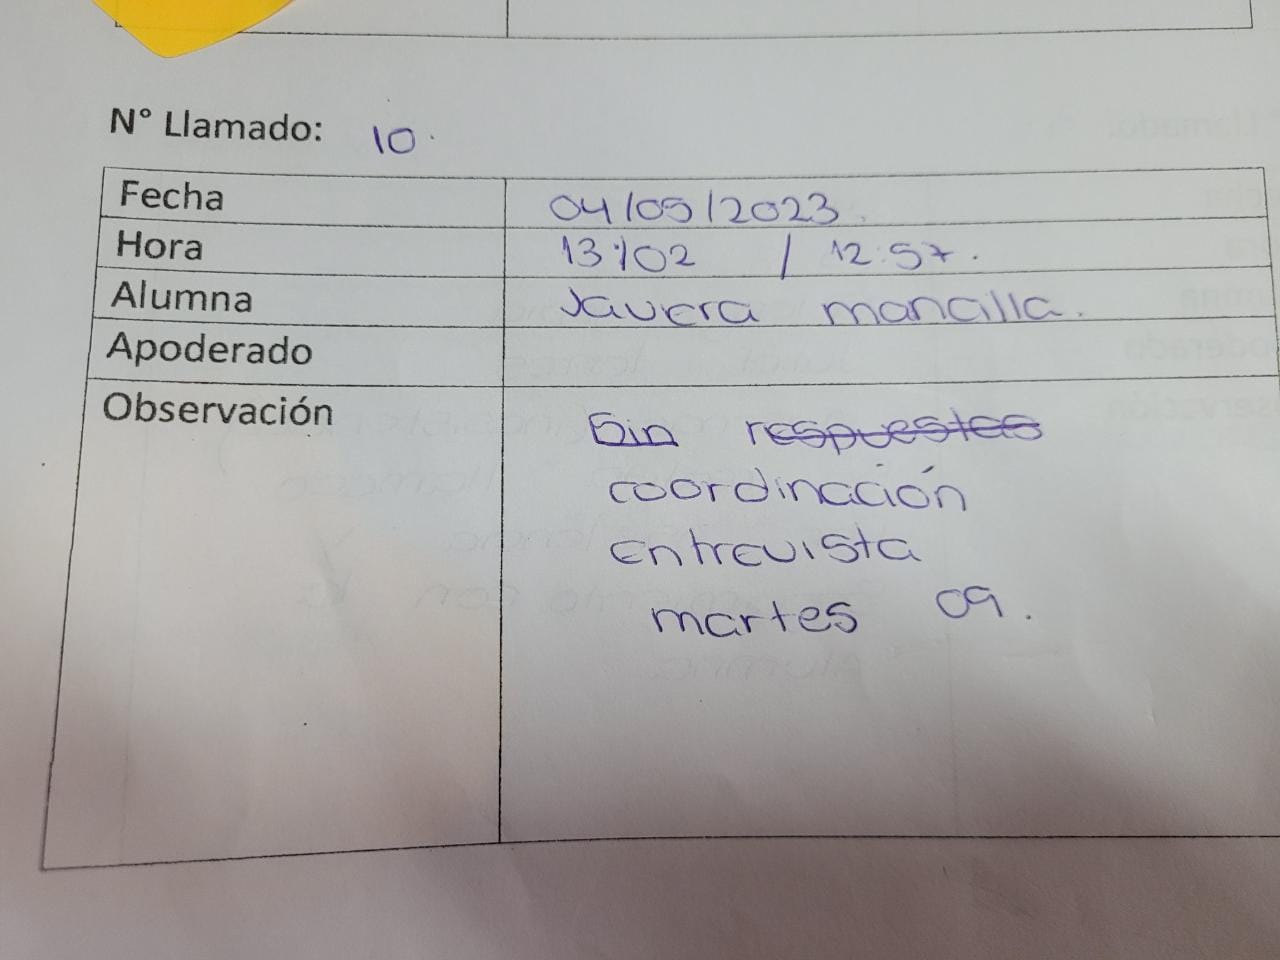 N° Llamado: 10.
Fecha 04/05/2023.
Hora 13:02 / 12:57.
Alumna Javiera mancilla.
Apoderado
Observación Sin respuestas
coordinación
entrevista
martes 09.